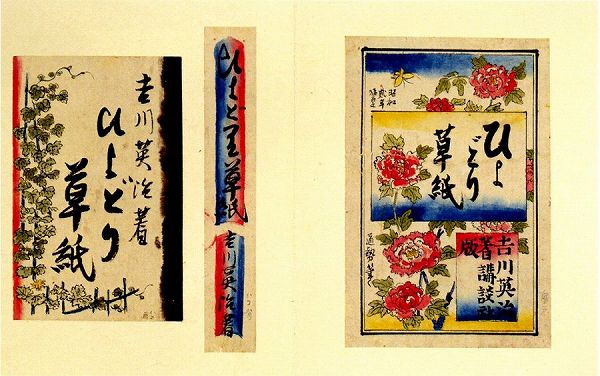 吉川英治著
ひよどり
草紙
ひよどり草紙
吉川英治著
昭和
ひよ
どり
草紙
吉川英治
著講談社
版